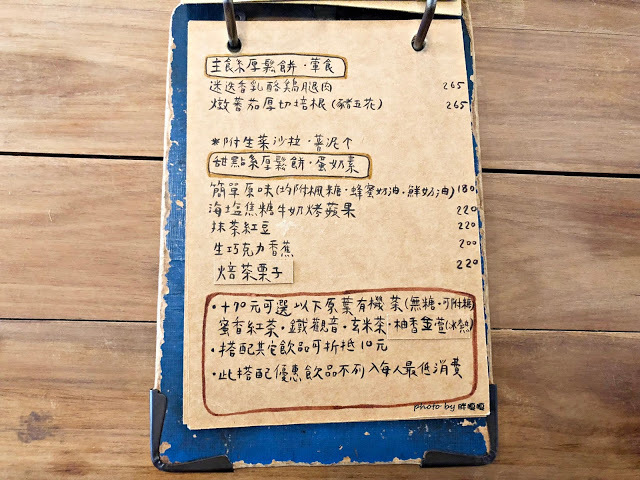 主食系厚鬆餅·葷食
迷迭香乳酪鷄腿肉 265
燉蕃茄厚切培根(豬五花) 265
*附生菜沙拉·薯泥个
甜點系厚鬆餅·蛋奶素
簡單原味(均附楓糖·蜂蜜奶油·鮮奶油) 180
海塩焦糖牛奶烤蘋果 220
抹茶紅豆 220
生巧克力香蕉 200
焙茶栗子 220
·+70元可選以下原葉有機茶(無糖·可附糖)
蜜香紅茶·鐵觀音·玄米茶·柚香金萱(冰/熱)
·搭配其它飲品可折抵10元
·此搭配優惠飲品不列入每人最低消費
photo by 胖嘟嘟